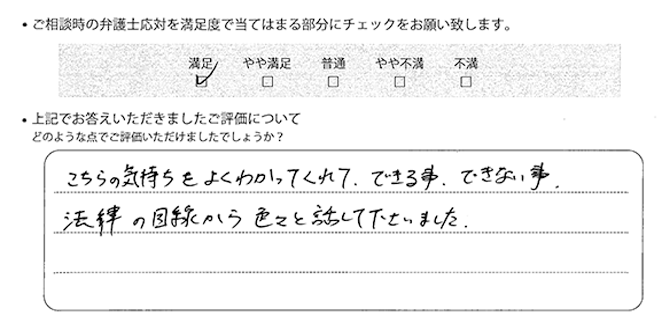 ・ご相談時の弁護士応対を満足度で当てはまる部分にチェックをお願い致します。
満足 やや満足 普通 やや不満 不満
☑ □ □ □ □
・上記でお答えいただきましたご評価について
どのような点でご評価いただけましたでしょうか？
こちらの気持ちをよくわかってくれて、できる事、できない事、
法律の目線から色々と話して下さいました。